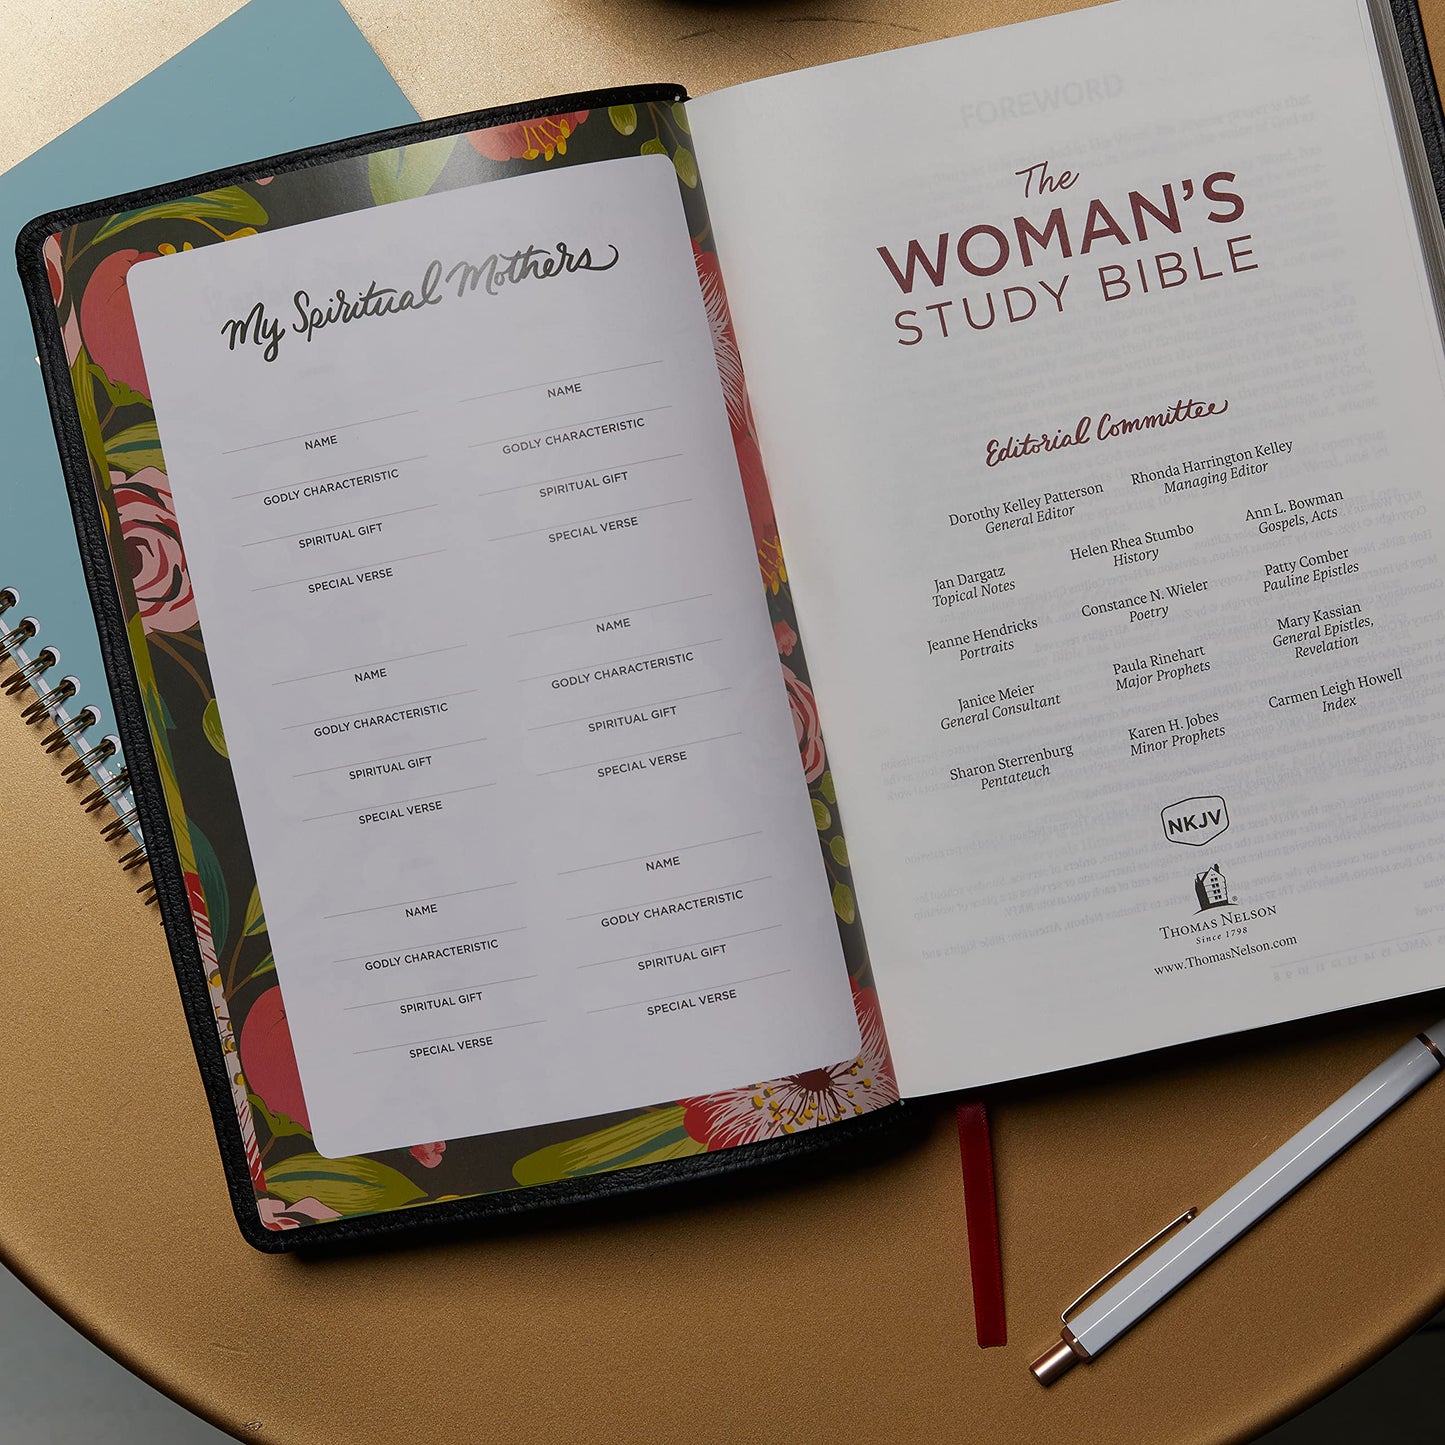 My Spiritual Mothers
NAME
GODLY CHARACTERISTIC
SPIRITUAL GIFT
SPECIAL VERSE
NAME
GODLY CHARACTERISTIC
SPIRITUAL GIFT
SPECIAL VERSE
NAME
GODLY CHARACTERISTIC
SPIRITUAL GIFT
SPECIAL VERSE
NAME
GODLY CHARACTERISTIC
SPIRITUAL GIFT
SPECIAL VERSE
NAME
GODLY CHARACTERISTIC
SPIRITUAL GIFT
SPECIAL VERSE
NAME
GODLY CHARACTERISTIC
SPIRITUAL GIFT
SPECIAL VERSE
FOREWORD
The
WOMAN'S
STUDY BIBLE
Editorial Committee
Dorothy Kelley Patterson
General Editor
Rhonda Harrington Kelley
Managing Editor
Jan Dargatz
Topical Notes
Helen Rhea Stumbo
History
Ann L. Bowman
Gospels, Acts
Jeanne Hendricks
Portraits
Constance N. Wieler
Poetry
Patty Comber
Pauline Epistles
Janice Meier
General Consultant
Paula Rinehart
Major Prophets
Mary Kassian
General Epistles,
Revelation
Sharon Sterrenburg
Pentateuch
Karen H. Jobes
Minor Prophets
Carmen Leigh Howell
Index
NKJV
THOMAS NELSON
Since 1798
www.ThomasNelson.com